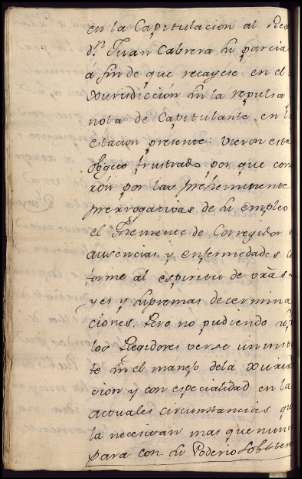 en la Capitulacion al
dn Juan Cabrera su parcial
a fin de que recayese en el
Jurisdiccion en la repulsa
nota de Capitulante, en l
estacion presente: vieron este
frustrado, por que con
por las prehеminente
prerrogativas de su empleo
el Theniente de Corregidor
ausencias y enfermedades
forme al espiritu de vrās
yes y supremas determina
ciones. Pero no pudiendo
los Regidores verse un
te en el manejo dela
cion y con especialidad en la
actuales circunstancias q
la necesitan mas que nun
para con su Poderio